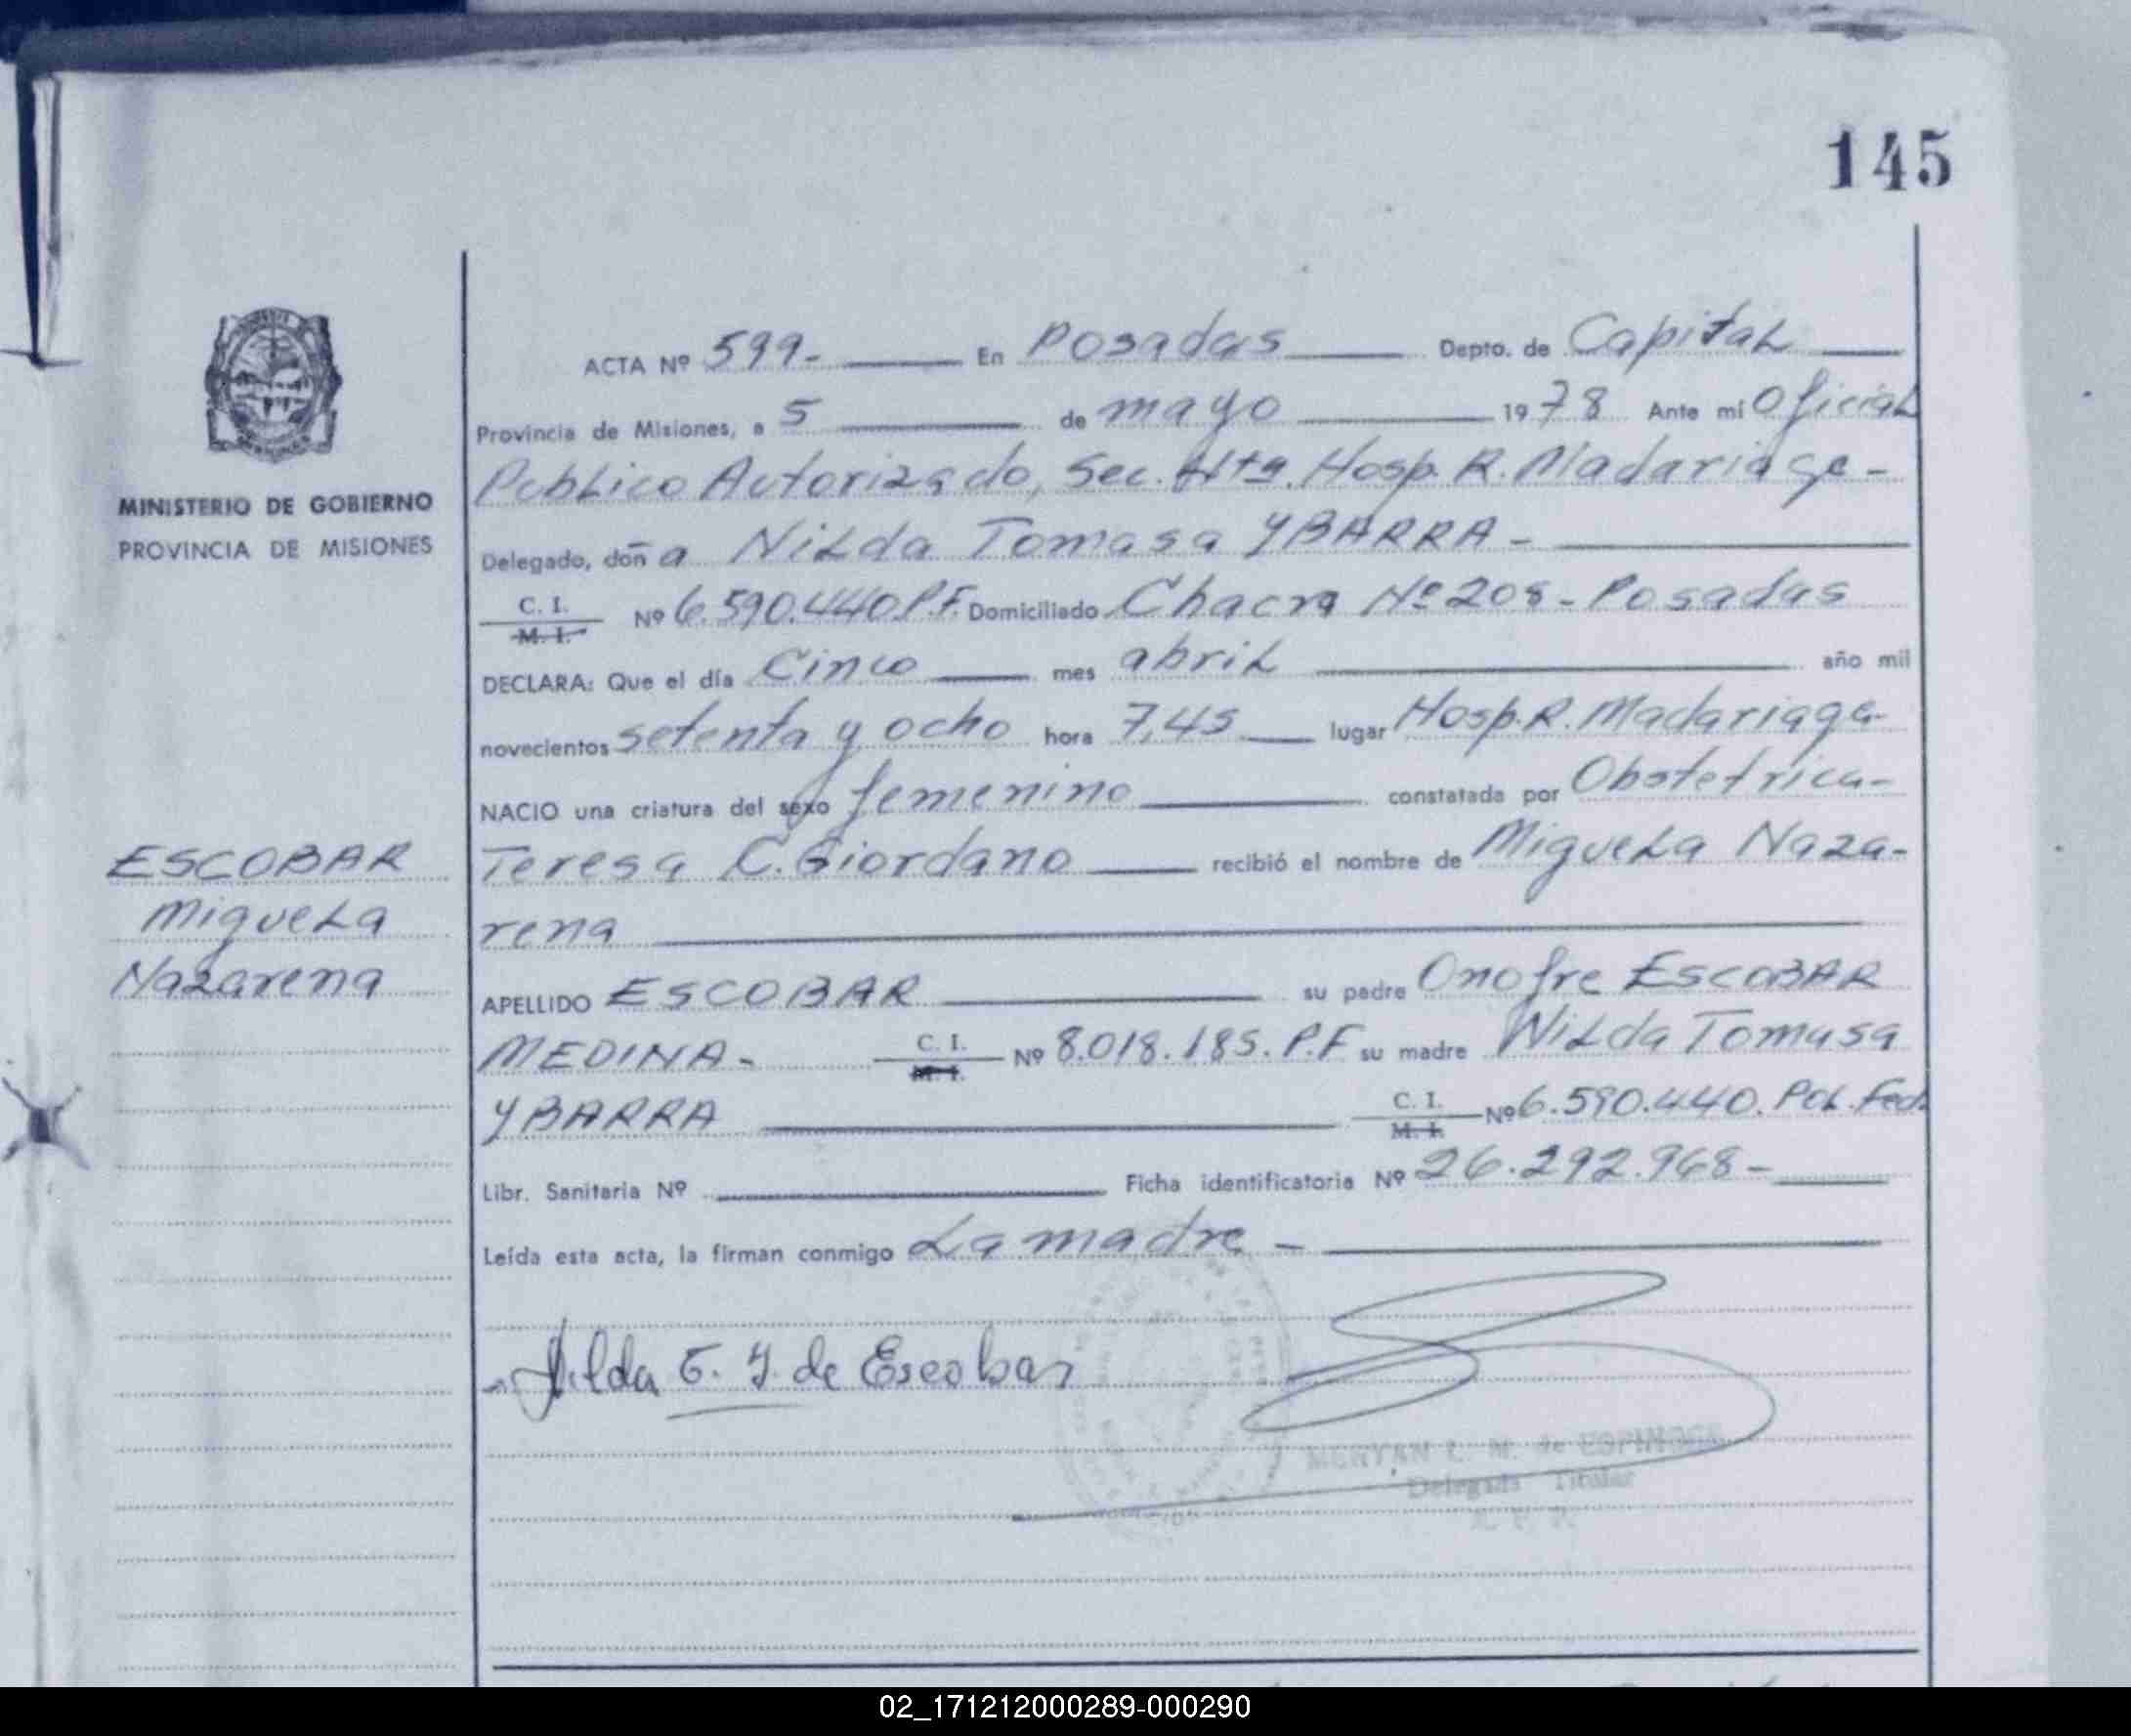 145
ACTA Nº 599- En Posadas Depto. de Capital
Provincia de Misiones, a 5 de mayo 1978 Ante mí Oficial
Publico Autorizado, Sec. Hosp. R. Madariaga -
MINISTERIO DE GOBIERNO
PROVINCIA DE MISIONES
Delegado, doña Nilda Tomasa YBARRA -
C. I.
M. I.
Nº 6.590.440 P.F. Domiciliado Chacra Nº 208 - Posadas
DECLARA: Que el día Cinco mes abril año mil
novecientos setenta y ocho hora 7,45 lugar Hosp. R. Madariaga-
NACIO una criatura del sexo femenino constatada por Obstetrica-
Teresa C. Giordano recibió el nombre de Miguela Naza-
rena
ESCOBAR
Miguela
Nazarena
APELLIDO ESCOBAR su padre Onofre ESCOBAR
MEDINA - C. I. M. I. Nº 8.018.185. P.F su madre Nilda Tomasa
YBARRA C. I. M. I. Nº 6.590.440. Pol. Fed.
Libr. Sanitaria Nº Ficha identificatoria Nº 26.292.968-
Leída esta acta, la firman conmigo La madre -
Nilda T. Y. de Escobar
L. M. de ESPINOSA
Delegada Titular
02_171212000289-000290